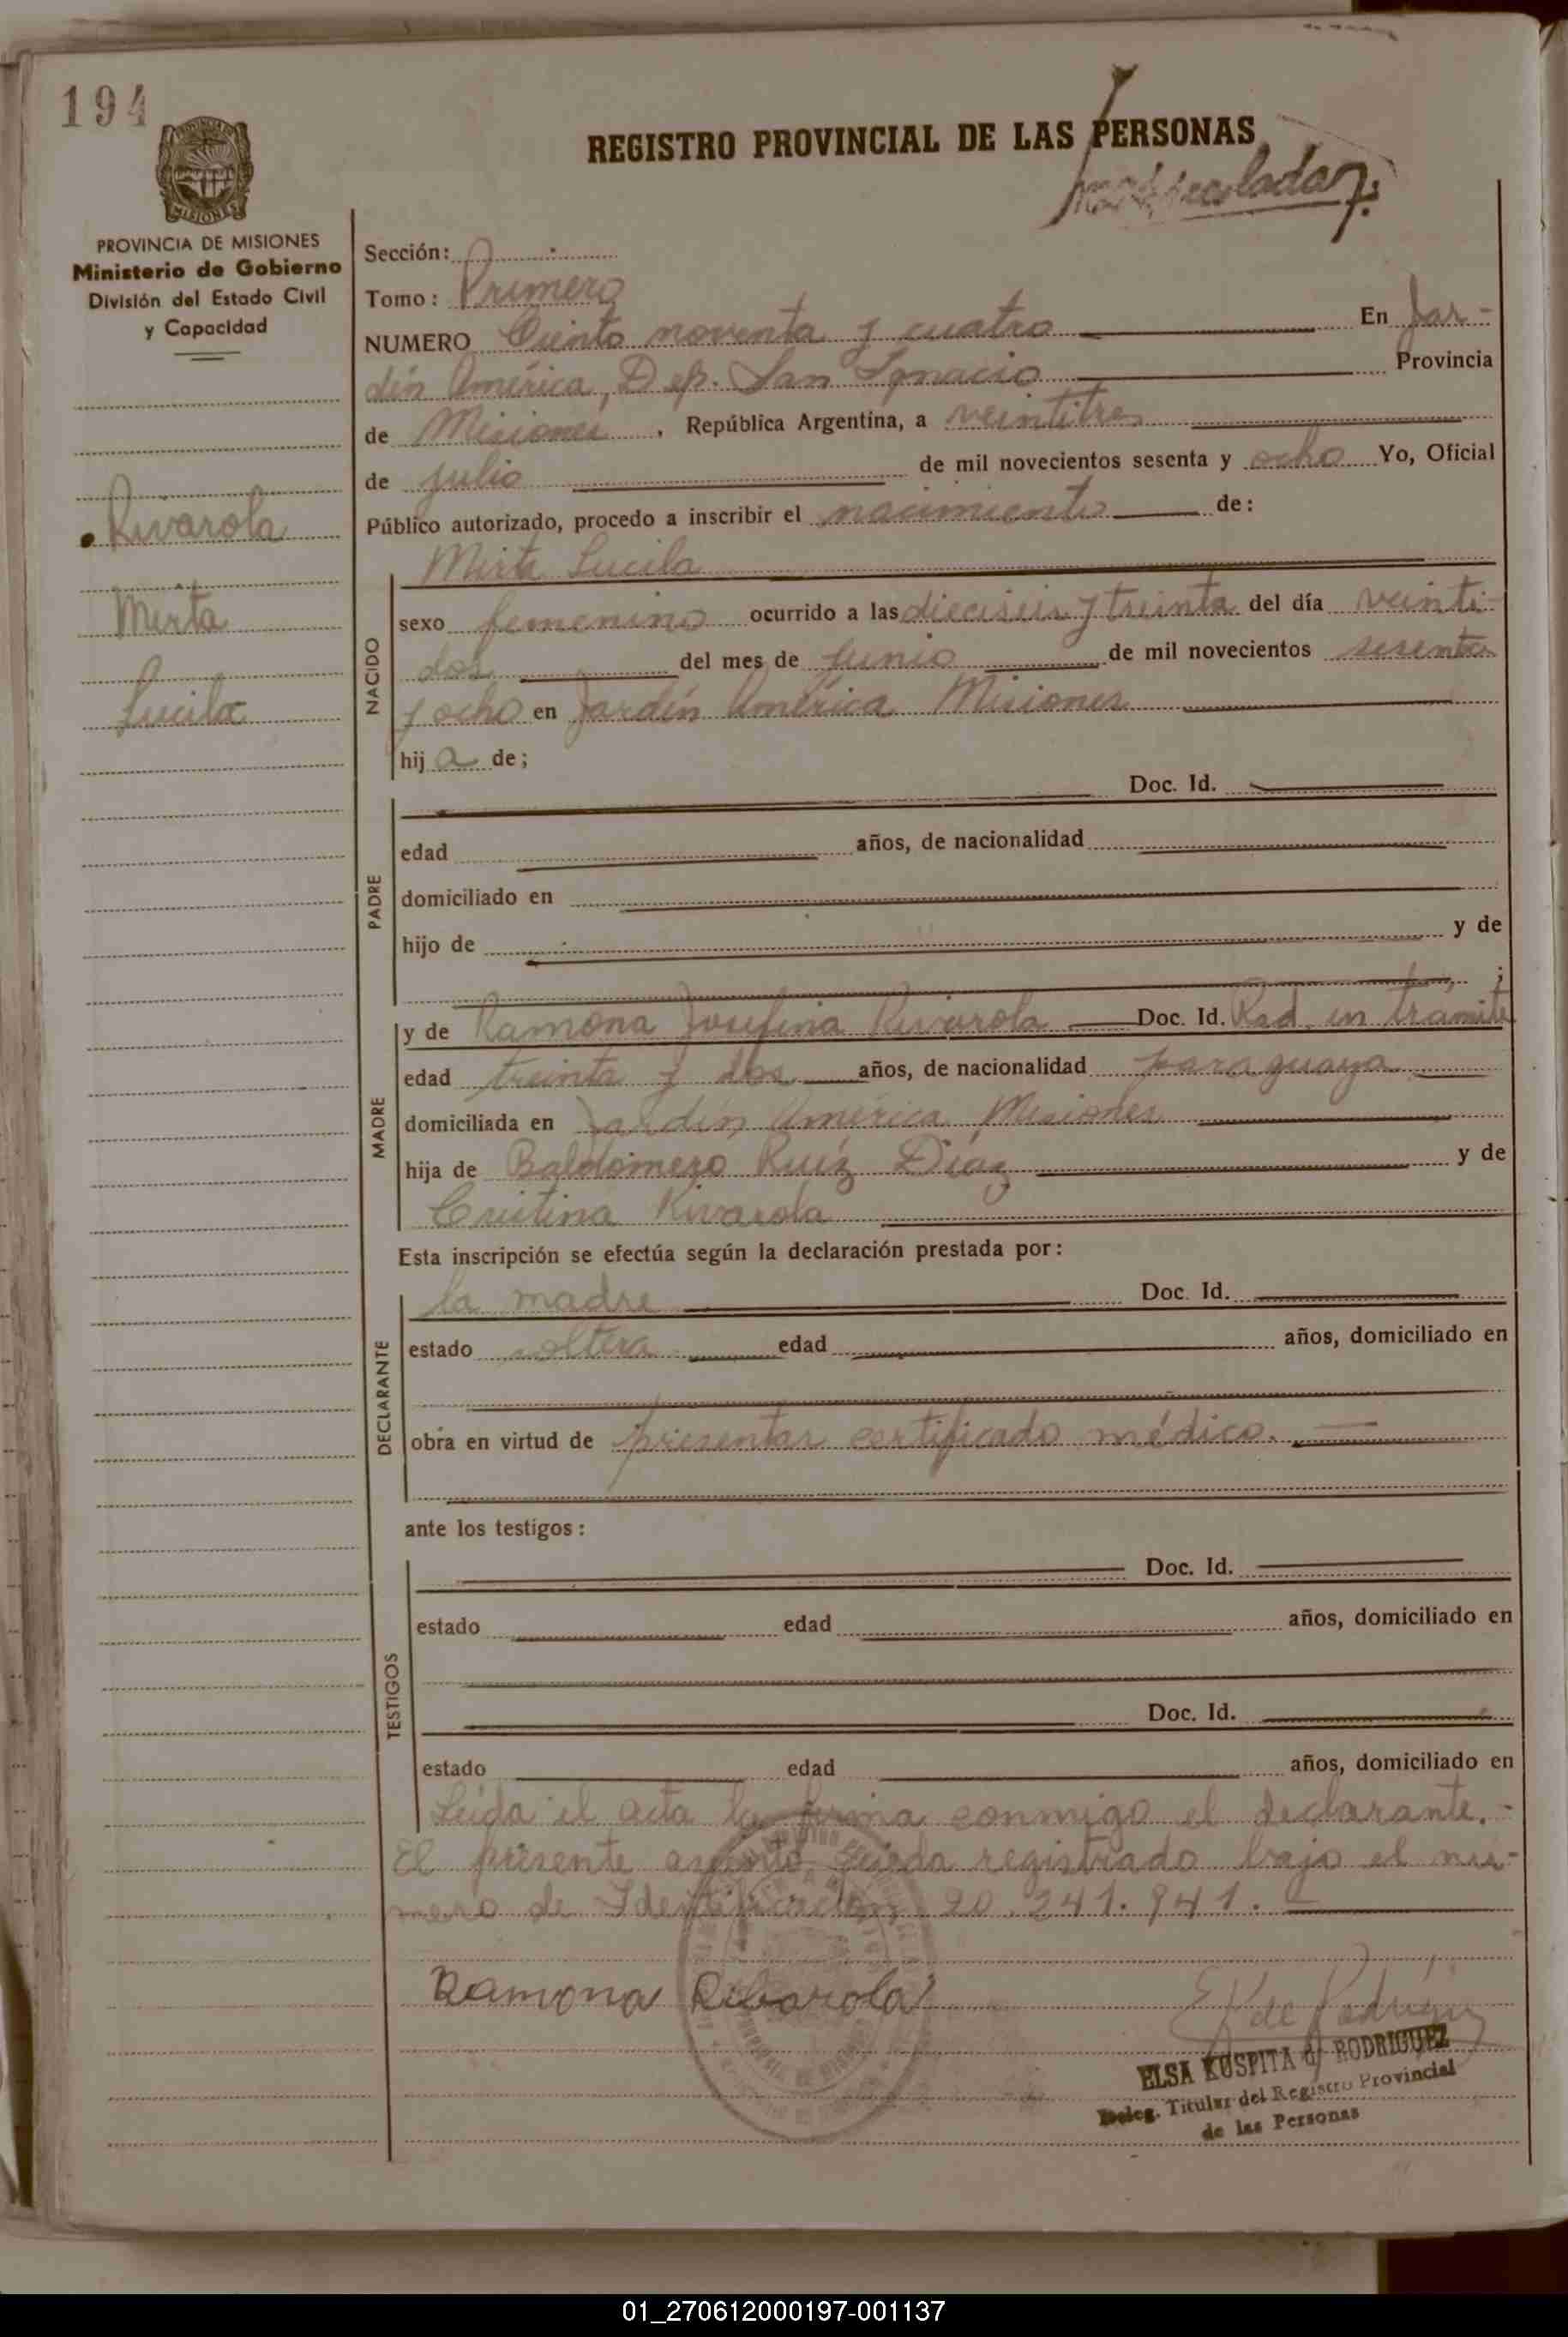 194
REGISTRO PROVINCIAL DE LAS PERSONAS
PROVINCIA DE MISIONES
Ministerio de Gobierno
División del Estado Civil
y Capacidad
Sección:
Tomo: Primero
NUMERO Ciento noventa y cuatro En Jar-
dín América, Dep. San Ignacio Provincia
de Misiones, República Argentina, a veintitres
de julio de mil novecientos sesenta y ocho Yo, Oficial
Público autorizado, procedo a inscribir el nacimiento de:
Rivarola
Mirta
Lucila
Mirta Lucila
NACIDO
sexo femenino ocurrido a las dieciseis y treinta del día veinti-
dos del mes de junio de mil novecientos sesenta
y ocho en Jardín América Misiones
hija de;
Doc. Id.
PADRE
edad años, de nacionalidad
domiciliado en
hijo de y de
;
MADRE
y de Ramona Josefina Rivarola Doc. Id. Rad. en trámite
edad treinta y dos años, de nacionalidad paraguaya
domiciliada en Jardín América Misiones
hija de Baldomero Ruíz Díaz y de
Cristina Rivarola
Esta inscripción se efectúa según la declaración prestada por:
DECLARANTE
la madre Doc. Id.
estado soltera edad años, domiciliado en
obra en virtud de presentar certificado médico.
ante los testigos:
TESTIGOS
Doc. Id.
estado edad años, domiciliado en
Doc. Id.
estado edad años, domiciliado en
Leída el acta la firma conmigo el declarante.-
El presente asiento, queda registrado bajo el nú-
mero de Identificación 20.241.941.
Ramona Ribarola
E K de Rodriguez
ELSA KUSPITA d/ RODRIGUEZ
Deleg. Titular del Registro Provincial
de las Personas
01_270612000197-001137